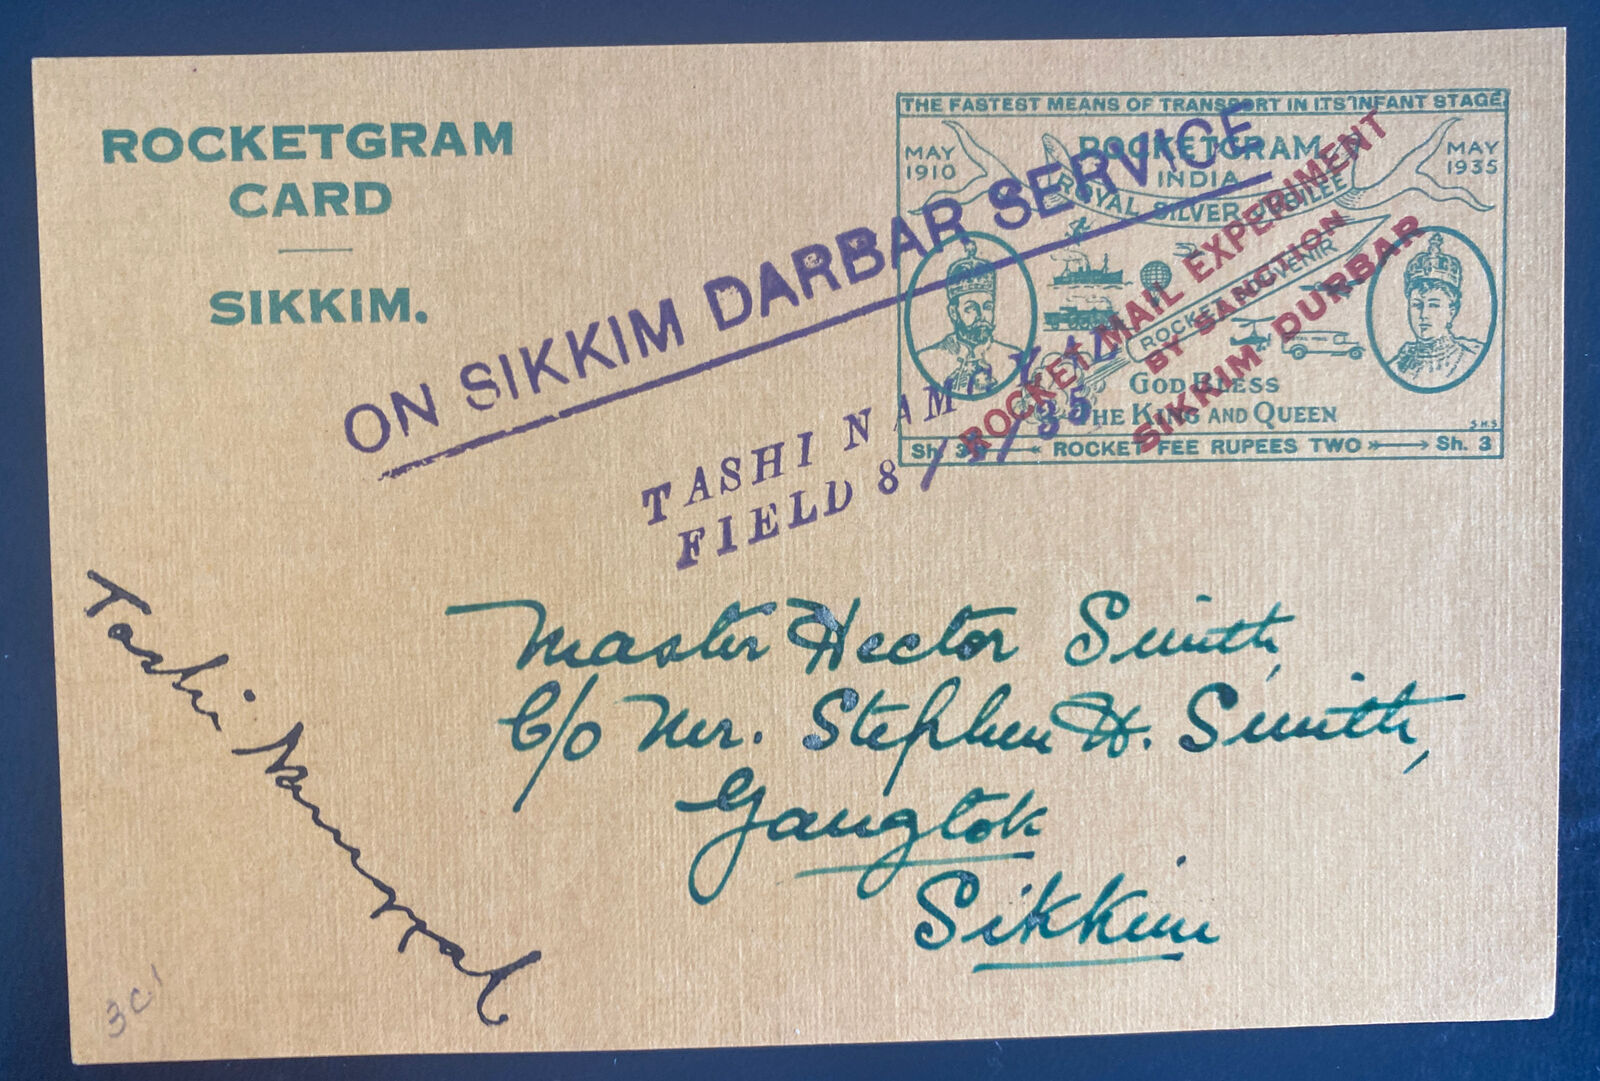 ROCKETGRAM
CARD
SIKKIM.
THE FASTEST MEANS OF TRANSPORT IN ITS INFANT STAGE
MAY
1910
ROCKETGRAM
INDIA
ROYAL SILVER JUBILEE
MAY
1935
ROCKET SOUVENIR
GOD BLESS
THE KING AND QUEEN
S.H.S
Sh. 3 ROCKET FEE RUPEES TWO Sh. 3
ROCKET MAIL EXPERIMENT
BY SANCTION
SIKKIM DURBAR
ON SIKKIM DARBAR SERVICE
TASHI NAMGYAL
FIELD 8/ /35.
Master Hector Smith,
C/o Mr. Stephen H. Smith,
Gangtok
Sikkim
Tashi Namgyal
3C.1